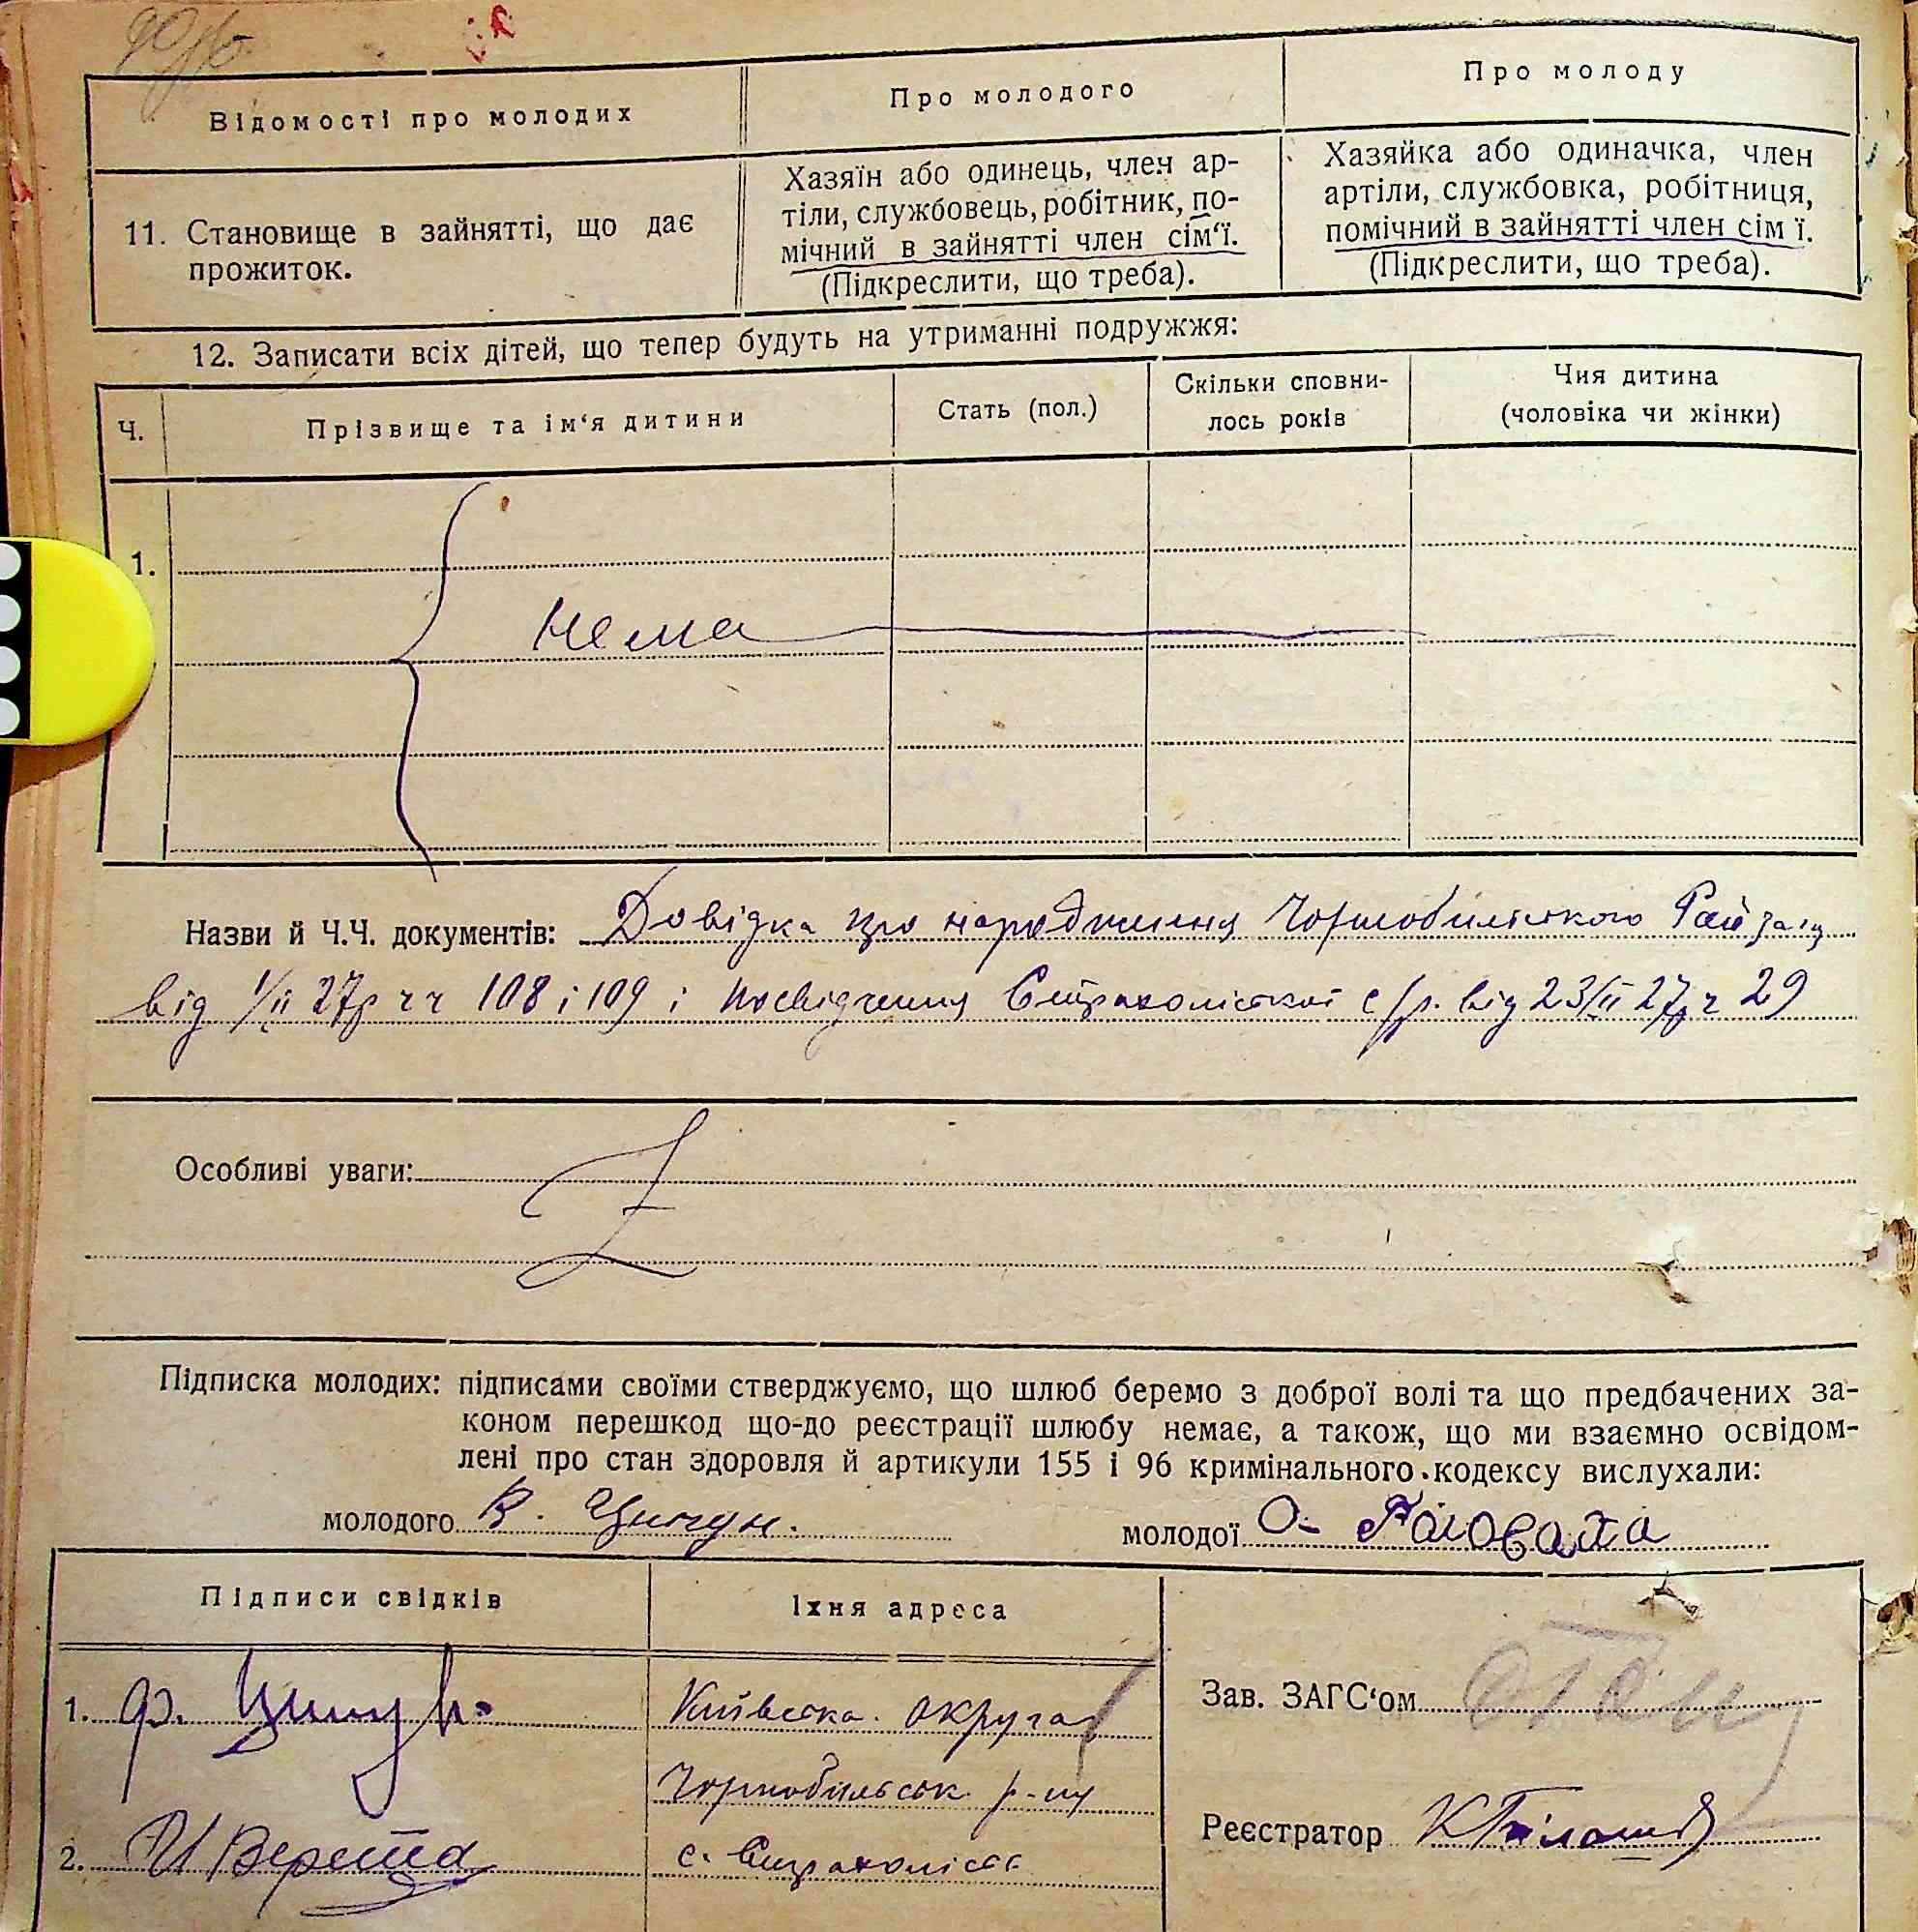 Відомості про молодих
Про молодого
Про молоду
11. Становище в зайнятті, що дає
прожиток.
Хазяїн або одинець, член ар-
тіли, службовець, робітник, по-
мічний в зайнятті член сім‘ї.
(Підкреслити, що треба).
Хазяйка або одиначка, член
артіли, службовка, робітниця,
помічний в зайнятті член сім ї.
(Підкреслити, що треба).
12. Записати всіх дітей, що тепер будуть на утриманні подружжя:
Ч.
Прізвище та ім‘я дитини
Стать (пол.)
Скільки сповни-
лось років
Чия дитина
(чоловіка чи жінки)
1.
Нема
Назви й Ч.Ч. документів: Довідка про народження Чорнобильського
від 1/II 27р чч 108 і 109 і посвідчення с/р. від 23/II 27р ч 29
Особливі уваги:
Підписка молодих: підписами своїми стверджуємо, що шлюб беремо з доброї волі та що предбачених за-
коном перешкод що-до реєстрації шлюбу немає, а також, що ми взаємно освідом-
лені про стан здоровля й артикули 155 і 96 кримінального кодексу вислухали:
молодого В.
молодої О.
Підписи свідків
Їхня адреса
1. Ф.
Київська округа
Чорнобильськ. р-ну
2.
с.
Зав. ЗАГС‘ом
Реєстратор